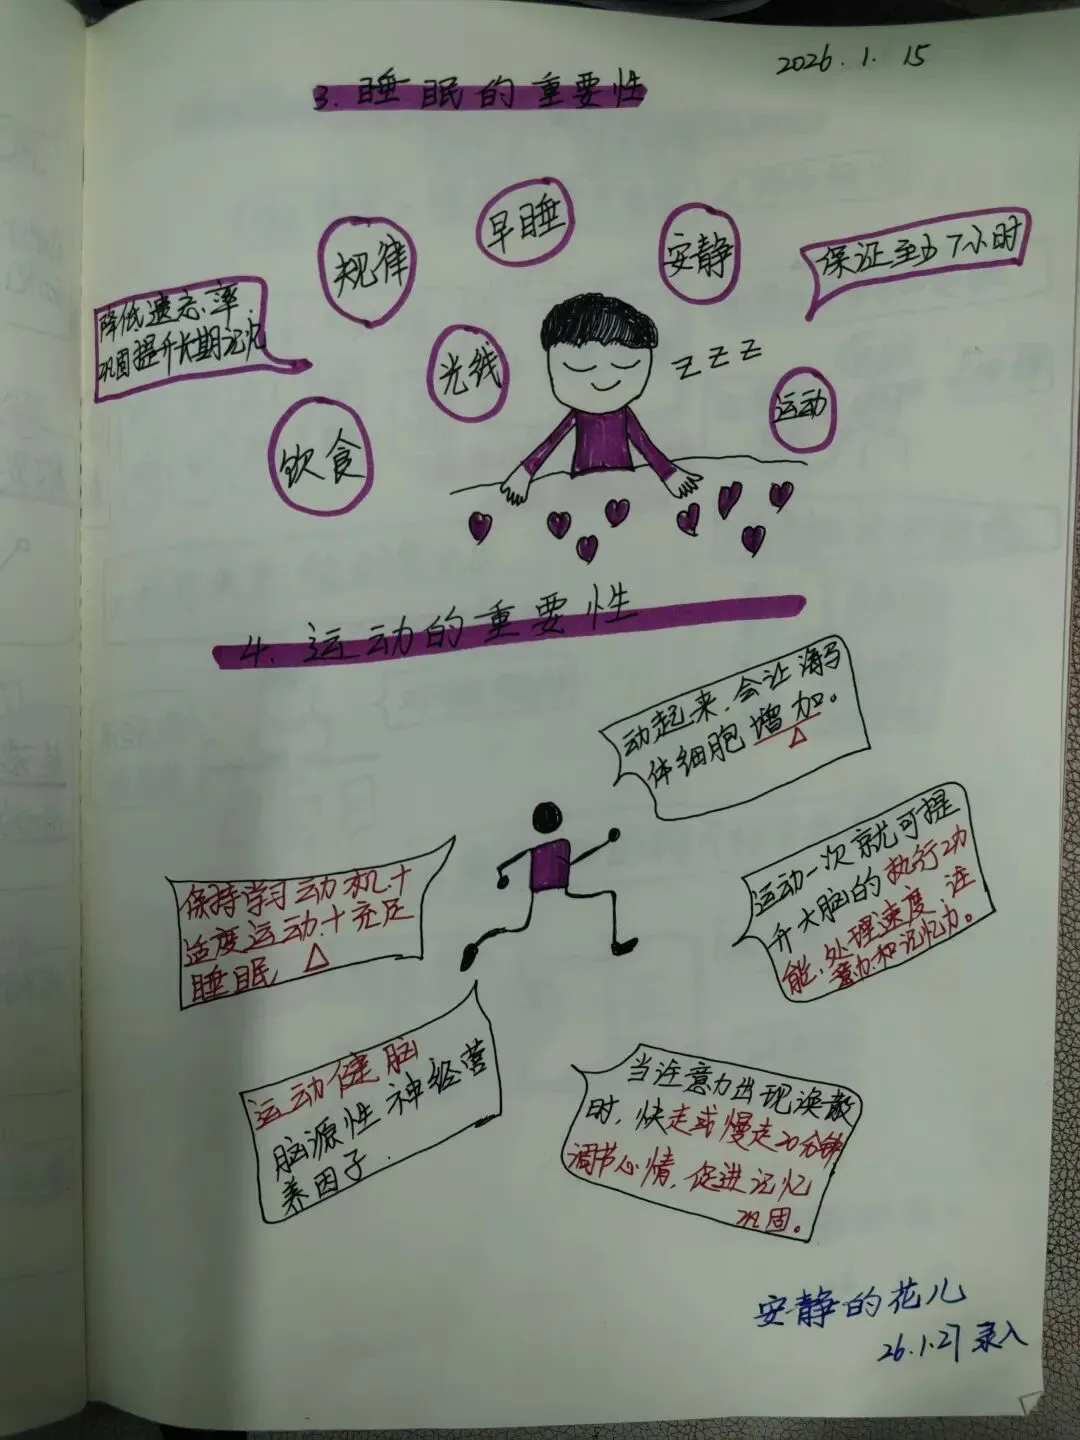 2026.1.15
3.睡眠的重要性
早睡
规律
安静
保证至少7小时
降低遗忘率,
巩固提升长期记忆
光线
zzz
运动
饮食
4.运动的重要性
动起来,会让海马
体细胞增加。
运动一次就可提
升大脑的执行功
能、处理速度、注
意力和记忆力。
保持学习动机+
适度运动+充足
睡眠
运动健脑
脑源性神经营
养因子.
当注意力出现涣散
时,快走或慢走20分钟
调节心情,促进记忆
巩固。
安静的花儿
26.1.27录入